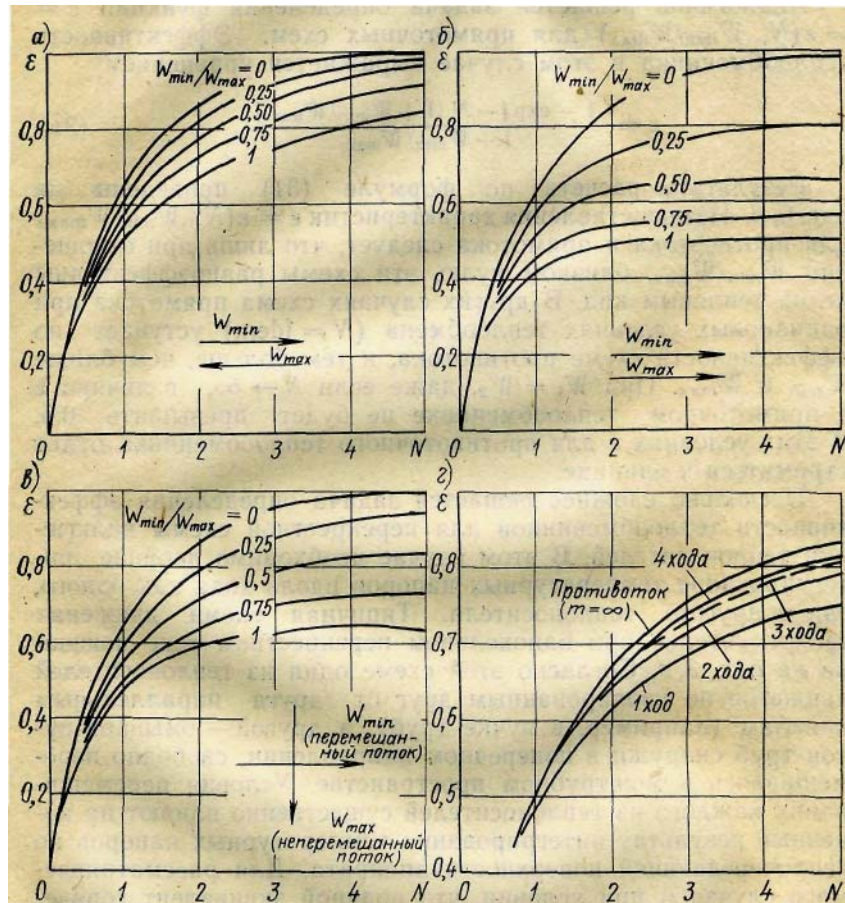 а)
ε
W min/W max = 0
0,25
0,50
0,75
1
0,8
0,6
0,4
0,2
W min
W max
0 1 2 3 4 N
б)
ε
W min/W max = 0
0,25
0,50
0,75
1
0,8
0,6
0,4
0,2
W min
W max
0 1 2 3 4 N
в)
ε
W min/W max = 0
0,25
0,5
0,75
1
0,8
0,6
0,4
0,2
W min
(перемешан-
ный поток)
W max
(неперемешанный
поток)
0 1 2 3 4 N
г)
ε
4 хода
Противоток
(m=∞)
3 хода
2 хода
1 ход
0,8
0,7
0,6
0,5
0,4
0 1 2 3 4 N